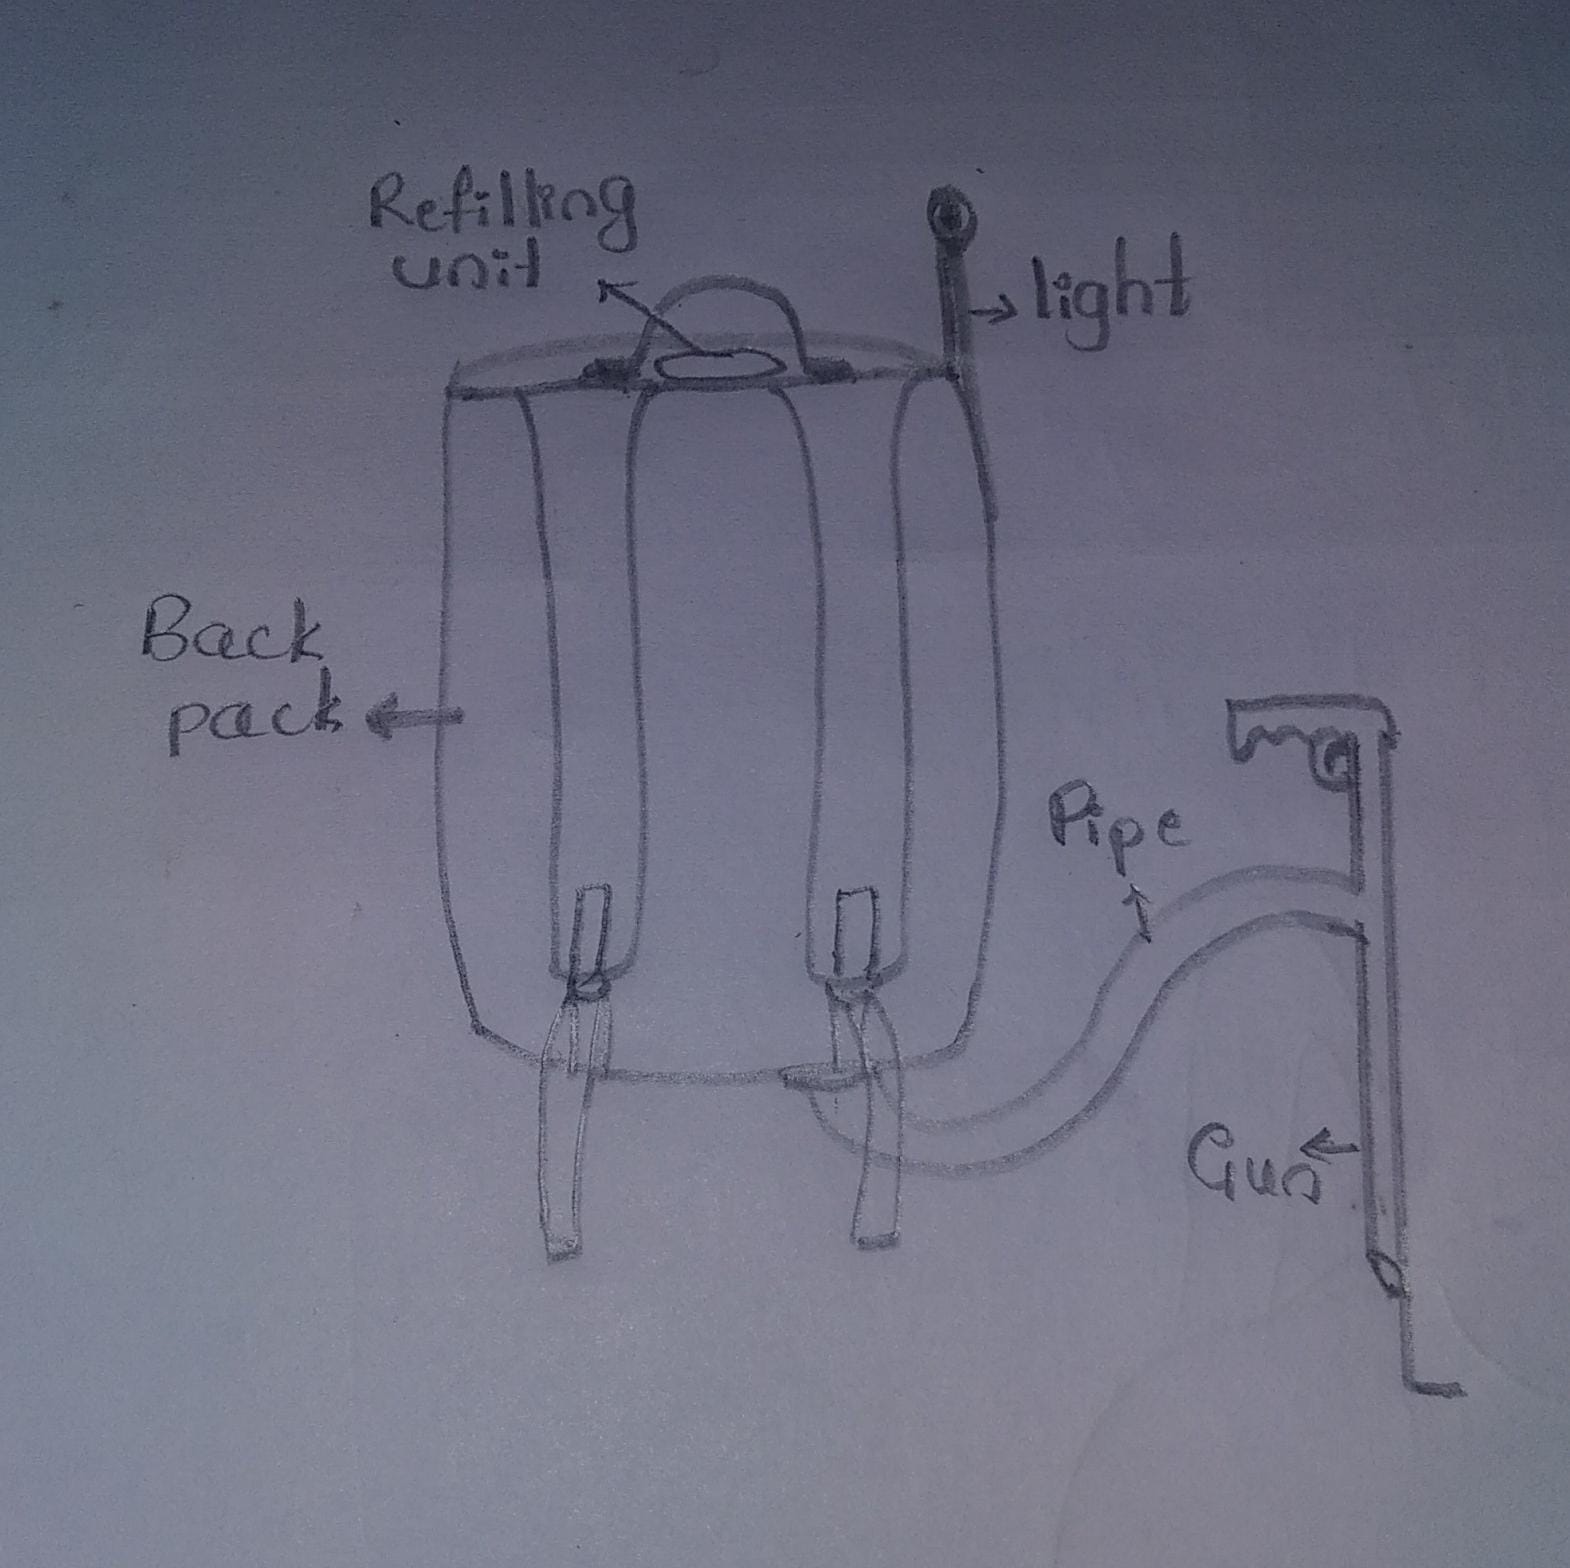 Refilling
unit
light
Back
pack
Pipe
Gun